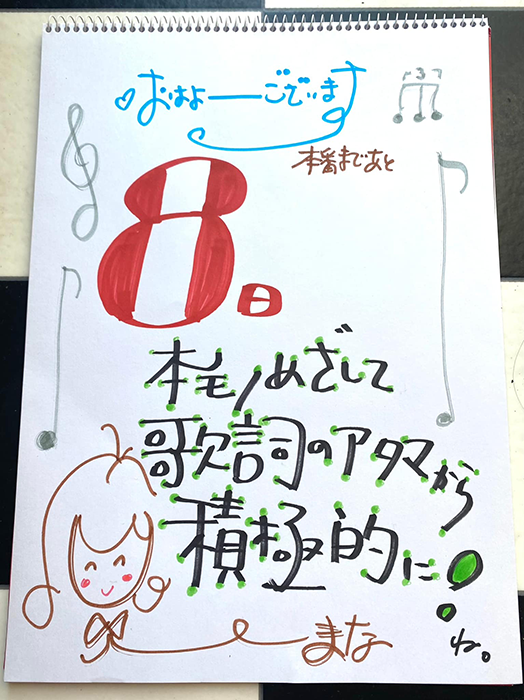 おはよーーございます
3
本番まであと
8日
本モノめざして
歌詞のアタマから
積極的に!
ね。
まな